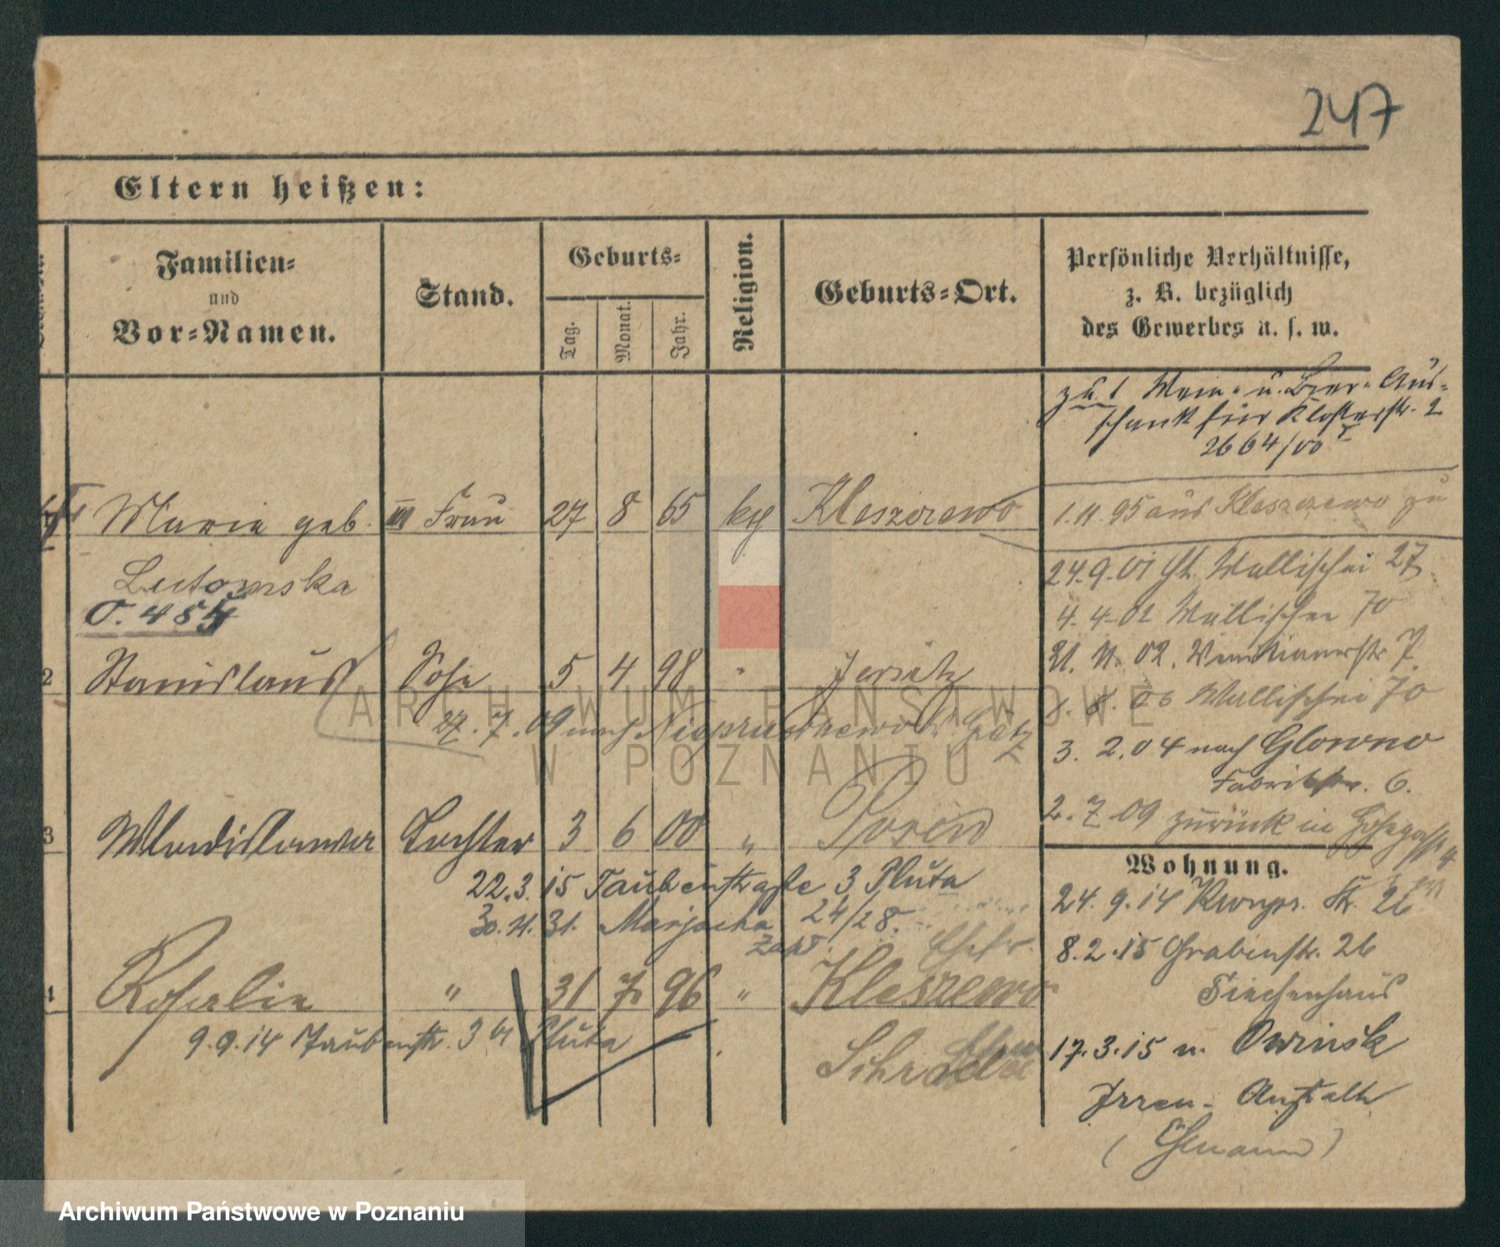 247
Eltern heißen:
Familien=
und
Vor=Namen.
Stand.
Geburts=
Tag.
Monat.
Jahr.
Religion.
Geburts=Ort.
Persönliche Verhältnisse,
z. B. bezüglich
des Gewerbes u. s. w.
zu 1 Wein- u. Bier-Aus=
schank für Klosterstr. 2
2664/00
Marie geb. Frau 27 8 65 kg Kleszczewo
Lutomska
O. 454
1. 11. 95 aus Kleszczewo zu
24.9.01 Wallischei 27
4. 4. 02 Wallischei 70
21. 11. 02. Venetianerstr 7.
8. 03 Wallischei 70
3. 2. 04 nach Glowno
Fabrikstr. 6.
2. 7. 09 zurück in
2 Stanislaus Sohn 5 4 98 " Jersitz
27. 7. 09 nach
3 Wladislawa Tochter 3 6 00 " Posen
22. 3. 15 Taubenstraße 3 Pluta
30. 11. 31. 24/28.
Wohnung.
24. 9. 14 26
8. 2. 15 Grabenstr. 26
Siechenhaus
17. 3. 15 n. Owinsk
Irren-Anstalt
(Ehemann)
Rosalie " 31 7 96 " Kleszewo
9. 9. 14 Taubenstr. 3 Pluta
ARCHIWUM PAŃSTWOWE
W POZNANIU
Archiwum Państwowe w Poznaniu